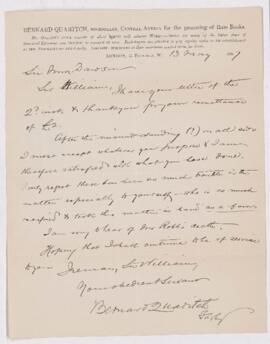 BERNARD QUARITCH, BOOKSELLER, CENTRAL AGENCY for the procuring of Rare Books
LONDON, 15 Piccadilly, W. 13 May
Sir Wm Dawson
Sir William, I have your letter of the
2nd inst. & thank you for your remittance
of
After the misunderstanding on all sides
I must accept whatever you propose & I am
therefore satisfied with what you have done.
I only regret there has been so much trouble in the
matter especially to yourself – who is so much
occupied & took this matter in hand as a favor
I am sorry to hear of Mr Robb's death.
Hoping that I shall continue to be of service
to you
I remain, Sir William
Your obedient Servant
Bernard Quaritch